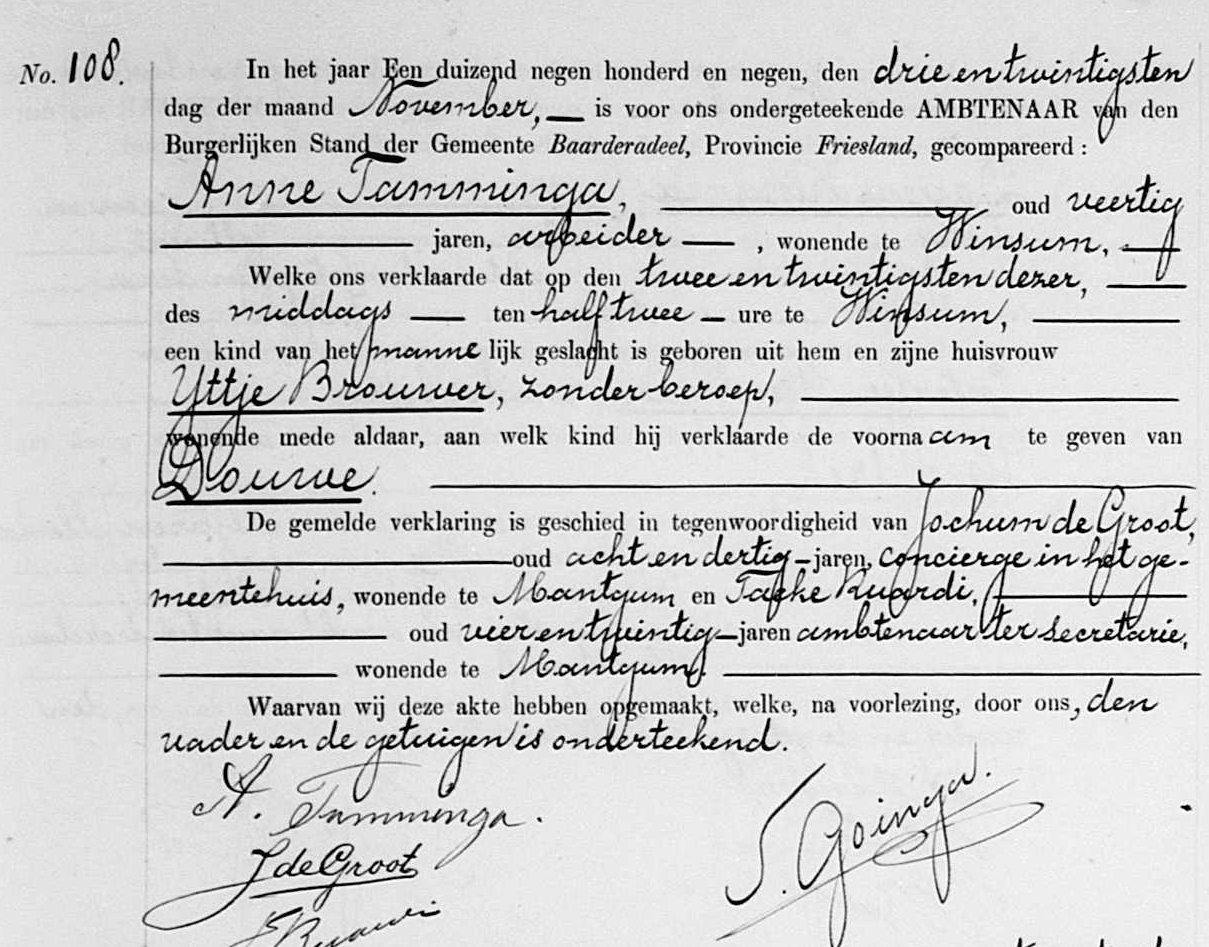 No. 108.
In het jaar Een duizend negen honderd en negen, den drie en twintigsten
dag der maand November, — is voor ons ondergeteekende AMBTENAAR van den
Burgerlijken Stand der Gemeente Baarderadeel, Provincie Friesland, gecompareerd :
Anne Tamminga,
oud veertig
jaren, arbeider — , wonende te Winsum, —
Welke ons verklaarde dat op den twee en twintigsten dezer, —
des middags — ten half twee — ure te Winsum, —
een kind van het mannelijk geslacht is geboren uit hem en zijne huisvrouw
Yttje Brouwer, zonder beroep, —
wonende mede aldaar, aan welk kind hij verklaarde de voornaam te geven van
Douwe. —
De gemelde verklaring is geschied in tegenwoordigheid van Jochum de Groot,
— oud acht en dertig – jaren, concierge in het ge-
meentehuis, wonende te Mantgum en Taeke Ruardi, —
— oud vier en twintig – jaren ambtenaar ter secretarie,
— wonende te Mantgum. —
Waarvan wij deze akte hebben opgemaakt, welke, na voorlezing, door ons, den
vader en de getuigen is onderteekend.
A. Tamminga.
S. Goinga.
J de Groot
Ruardi